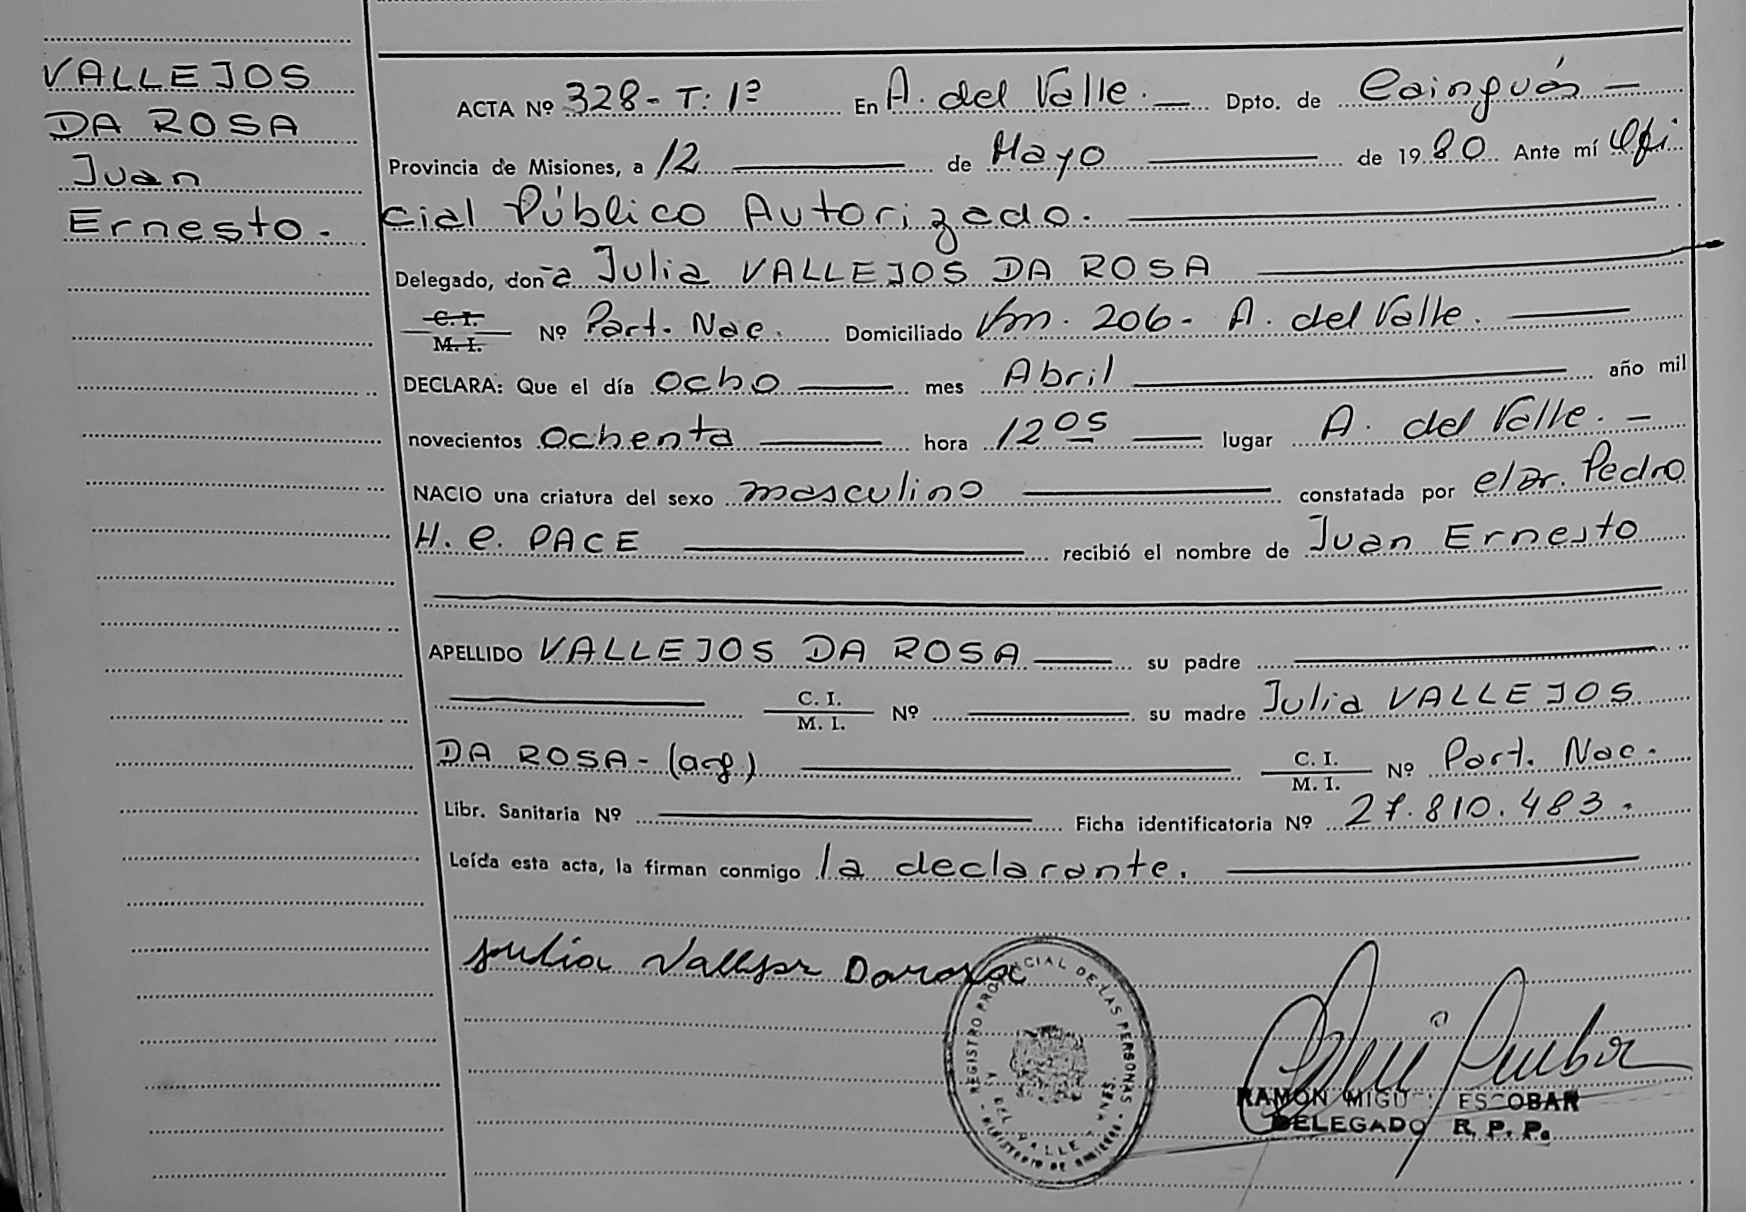 VALLEJOS
DA ROSA
Juan
Ernesto.-
ACTA Nº 328- T: 1º En A. del Valle.— Dpto. de Cainguás —
Provincia de Misiones, a 12 —— de Mayo —— de 1980 Ante mí Ofi
cial Público Autorizado. ——
Delegado, don-a Julia VALLEJOS DA ROSA ——
C. I. / M. I. Nº Part. Nac. Domiciliado Km. 206- A. del Valle. ——
DECLARA: Que el día ocho —— mes Abril —— año mil
novecientos ochenta —— hora 12 05 —— lugar A. del Valle. —
NACIO una criatura del sexo masculino —— constatada por el Dr. Pedro
H. C. PACE —— recibió el nombre de Juan Ernesto
APELLIDO VALLEJOS DA ROSA —— su padre ——
—— C. I. / M. I. Nº —— su madre Julia VALLEJOS
DA ROSA- (arg.) —— C. I. / M. I. Nº Part. Nac.
Libr. Sanitaria Nº —— Ficha identificatoria Nº 27.810.483.
Leída esta acta, la firman conmigo la declarante. ——
Julia Vallejos Darosa
REGISTRO PROVINCIAL DE LAS PERSONAS
DEL VALLE
RAMON MIGUEL ESCOBAR
DELEGADO R. P. P.